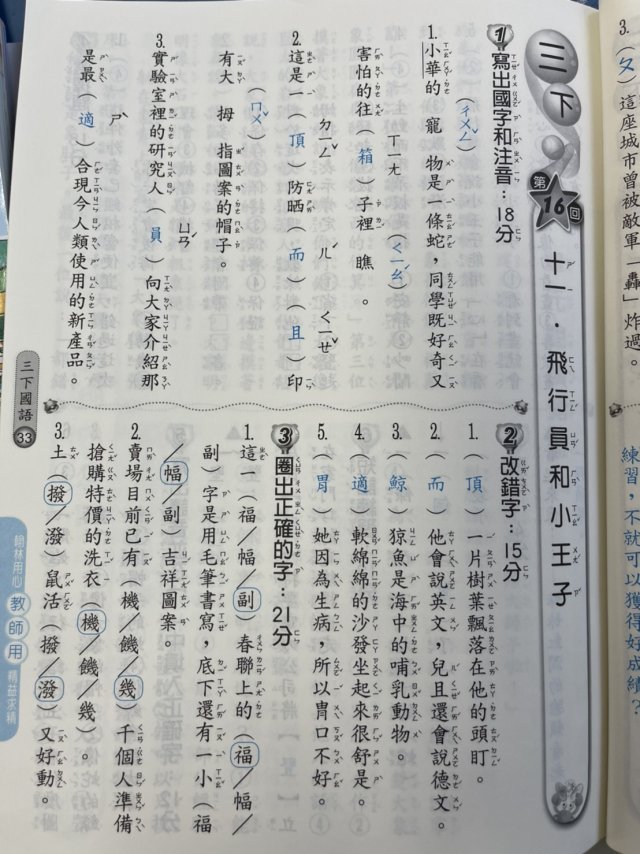 3.（ㄆ）這座城市曾被敵軍「轟」炸過。
練習，不就可以獲得好成績？
三下 第16回 十一．飛行員和小王子
1 寫出國字和注音：18分
1. 小華的 寵（ㄔㄨㄥˇ） 物是一條蛇，同學既好奇又
害怕的往（箱）ㄒㄧㄤ子裡 瞧（ㄑㄧㄠˊ）。
2. 這是一（頂）ㄉㄧㄥˇ防晒（而）ㄦˊ（且）ㄑㄧㄝˇ印
有大 拇（ㄇㄨˇ） 指圖案的帽子。
3. 實驗室裡的研究人（員）ㄩㄢˊ向大家介紹那
是最（適）ㄕˋ合現今人類使用的新產品。
2 改錯字：15分
1.（頂）一片樹葉飄落在他的頭盯。
2.（而）他會說英文，兒且還會說德文。
3.（鯨）猄魚是海中的哺乳動物。
4.（適）軟綿綿的沙發坐起來很舒是。
5.（胃）她因為生病，所以胄口不好。
3 圈出正確的字：21分
1. 這一（福／幅／副）春聯上的（福／幅／
副）字是用毛筆書寫，底下還有一小（福
／幅／副）吉祥圖案。
2. 賣場目前已有（機／饑／幾）千個人準備
搶購特價的洗衣（機／饑／幾）。
3. 土（撥／潑）鼠活（撥／潑）又好動。
三下國語
33
翰林用心 教師用 精益求精